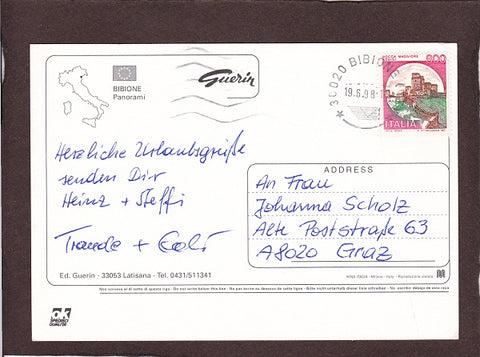 BIBIONE
Panorami
Guerin
30020 BIBIONE
19.6.98
ROCCA MAGGIORE
800
ITALIA
Herzliche Urlaubsgrüße
senden Dir
Heinz + Steffi
Traude +
Ed. Guerin - 33053 Latisana - Tel. 0431/511341
ADDRESS
An Frau
Johanna Scholz
Alte Poststraße 63
A8020 Graz
Milano - Italy - Riproduzione vietata
Non scrivere al di sotto di questa riga - Do not write below this line - Ne pas écrire au dessous de cette ligne - Bitte nicht unterhalb dieser linie schreiben
OK